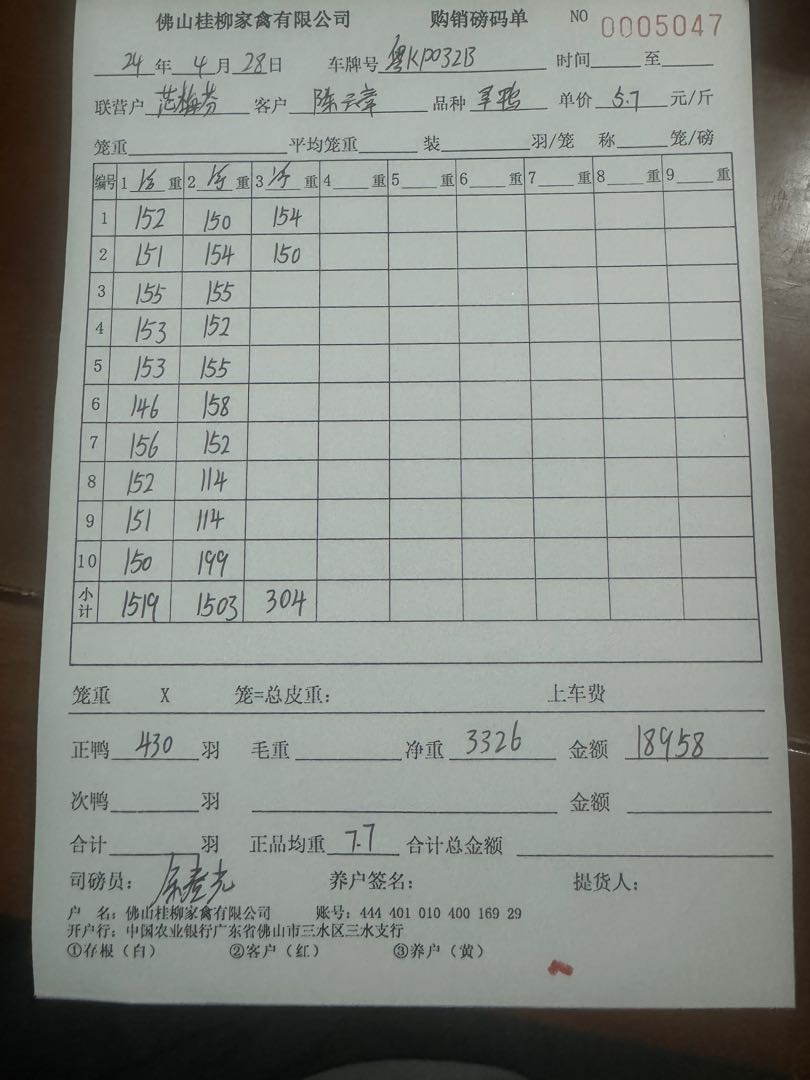 佛山桂柳家禽有限公司 购销磅码单 NO 0005047
24年4月28日 车牌号 粤KP032B 时间 至
联营户 范梅芬 客户 陈云 品种 鸭 单价 5.7 元/斤
笼重 平均笼重 装 羽/笼 称 笼/磅
编号 1 重 2 重 3 重 4 重 5 重 6 重 7 重 8 重 9 重
1 152 150 154
2 151 154 150
3 155 155
4 153 152
5 153 155
6 146 158
7 156 152
8 152 114
9 151 114
10 150 199
小计 1519 1503 304
笼重 X 笼=总皮重: 上车费
正鸭 430 羽 毛重 净重 3326 金额 18958
次鸭 羽 金额
合计 羽 正品均重 7.7 合计总金额
司磅员: 养户签名: 提货人:
户 名: 佛山桂柳家禽有限公司 账号: 444 401 010 400 169 29
开户行: 中国农业银行广东省佛山市三水区三水支行
①存根（白） ②客户（红） ③养户（黄）